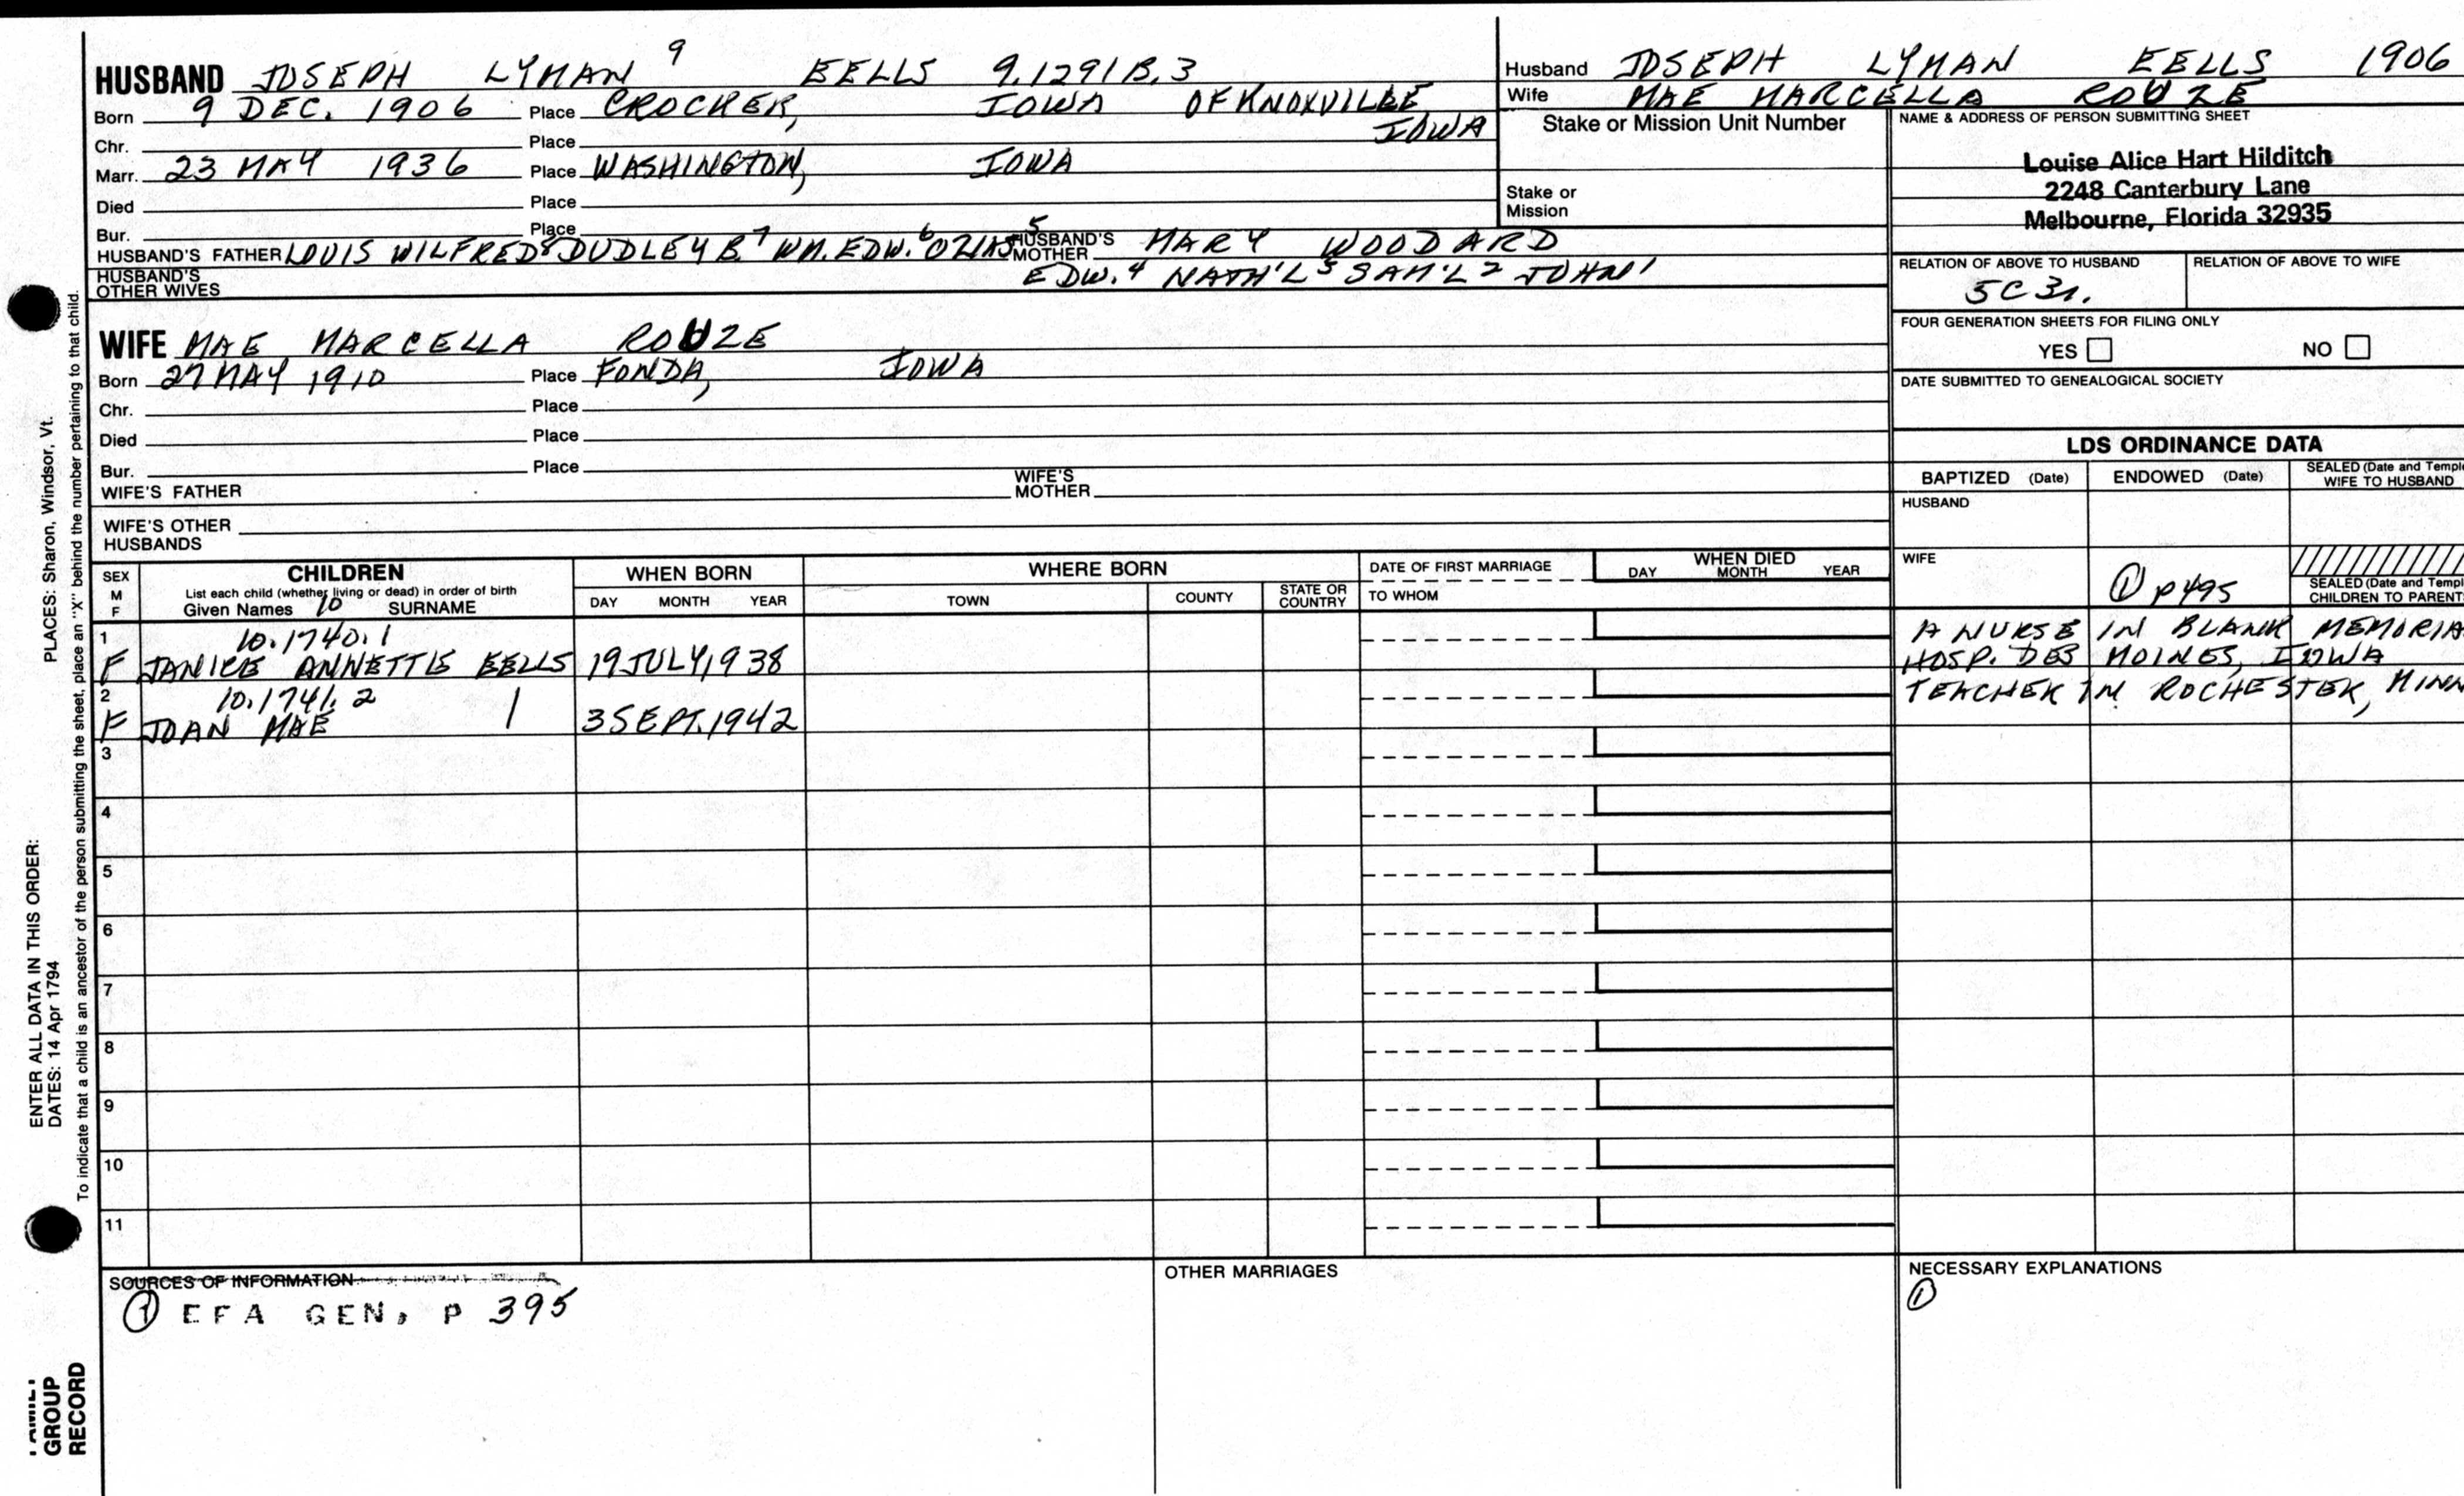 HUSBAND JOSEPH LYMAN 9 EELLS 9.1291B.3
Born 9 DEC. 1906 Place CROCKER, IOWA OF KNOXVILLE IOWA
Chr. Place
Marr. 23 MAY 1936 Place WASHINGTON, IOWA
Died Place
Bur. Place
HUSBAND'S FATHER LOUIS WILFRED 8 DUDLEY B. 7 WM. EDW. 6 OZIAS 5 HUSBAND'S MOTHER MARY WOODARD
HUSBAND'S OTHER WIVES EDW. 4 NATH'L 3 SAM'L 2 JOHN 1
Husband JOSEPH LYMAN EELLS 1906
Wife MAE MARCELLA ROUZE
Stake or Mission Unit Number
Stake or Mission
NAME & ADDRESS OF PERSON SUBMITTING SHEET
Louise Alice Hart Hilditch
2248 Canterbury Lane
Melbourne, Florida 32935
RELATION OF ABOVE TO HUSBAND RELATION OF ABOVE TO WIFE
5C3r.
FOUR GENERATION SHEETS FOR FILING ONLY
YES NO
DATE SUBMITTED TO GENEALOGICAL SOCIETY
WIFE MAE MARCELLA ROUZE
Born 27 MAY 1910 Place FONDA, IOWA
Chr. Place
Died Place
Bur. Place
WIFE'S FATHER WIFE'S MOTHER
WIFE'S OTHER HUSBANDS
LDS ORDINANCE DATA
BAPTIZED (Date) ENDOWED (Date) SEALED (Date and Temple WIFE TO HUSBAND
HUSBAND
WIFE
1 P495
SEALED (Date and Templ
CHILDREN TO PARENT
SEX M F
CHILDREN
List each child (whether living or dead) in order of birth
Given Names 10 SURNAME
WHEN BORN
DAY MONTH YEAR
WHERE BORN
TOWN COUNTY STATE OR COUNTRY
DATE OF FIRST MARRIAGE
TO WHOM
WHEN DIED
DAY MONTH YEAR
1 10.1740.1
F JANICE ANNETTE EELLS 19 JULY 1938
A NURSE IN BLANK MEMORIA
HOSP. DES MOINES, IOWA
2 10.1741.2
F JOAN MAE 3 SEPT. 1942
TEACHER IN ROCHESTER, MINN
3
4
5
6
7
8
9
10
11
SOURCES OF INFORMATION
1 EFA GEN, P 395
OTHER MARRIAGES
NECESSARY EXPLANATIONS
1
PLACES: Sharon, Windsor, Vt.
ENTER ALL DATA IN THIS ORDER:
DATES: 14 Apr 1794
To indicate that a child is an ancestor of the person submitting the sheet, place an "X" behind the number pertaining to that child.
FAMILY
GROUP
RECORD